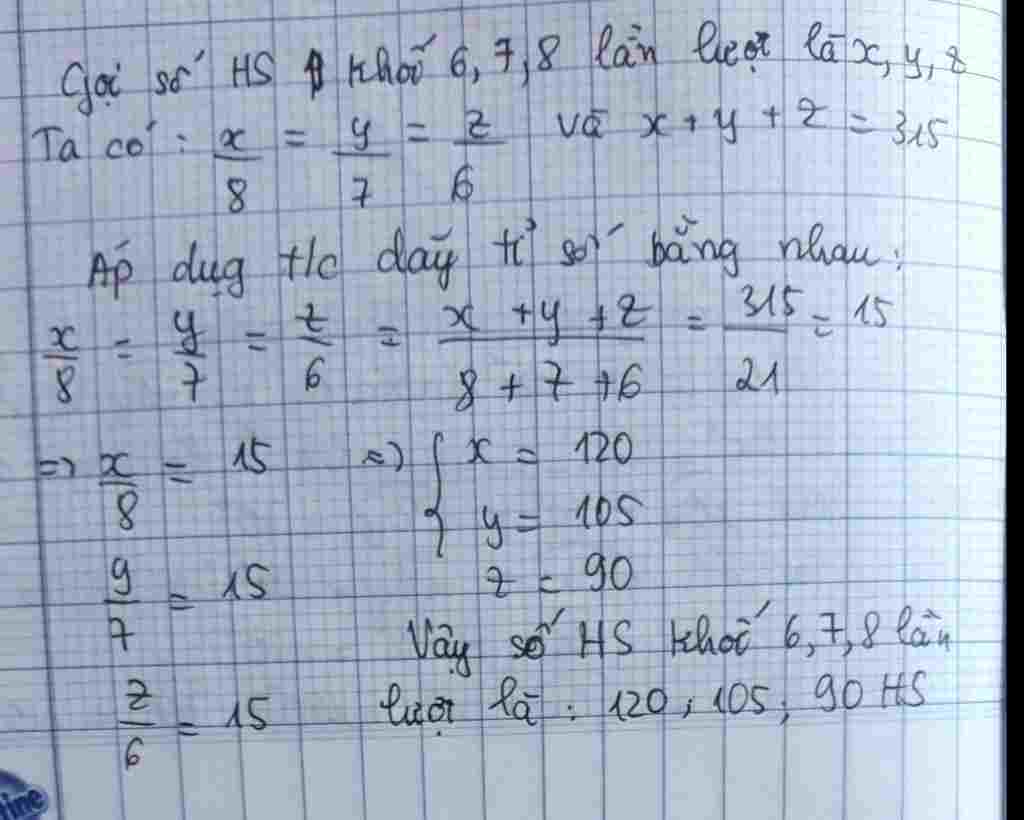 Gọi số HS khối 6, 7, 8 lần lượt là x, y, z
Ta có : x/8 = y/7 = z/6 và x + y + z = 315
Áp dụg t/c dãy tỉ số bằng nhau :
x/8 = y/7 = z/6 = (x + y + z)/(8 + 7 + 6) = 315/21 = 15
=> x/8 = 15 => { x = 120
y = 105
y/7 = 15 z = 90
Vậy số HS khối 6, 7, 8 lần
z/6 = 15 lượt là : 120 ; 105 ; 90 HS
ine